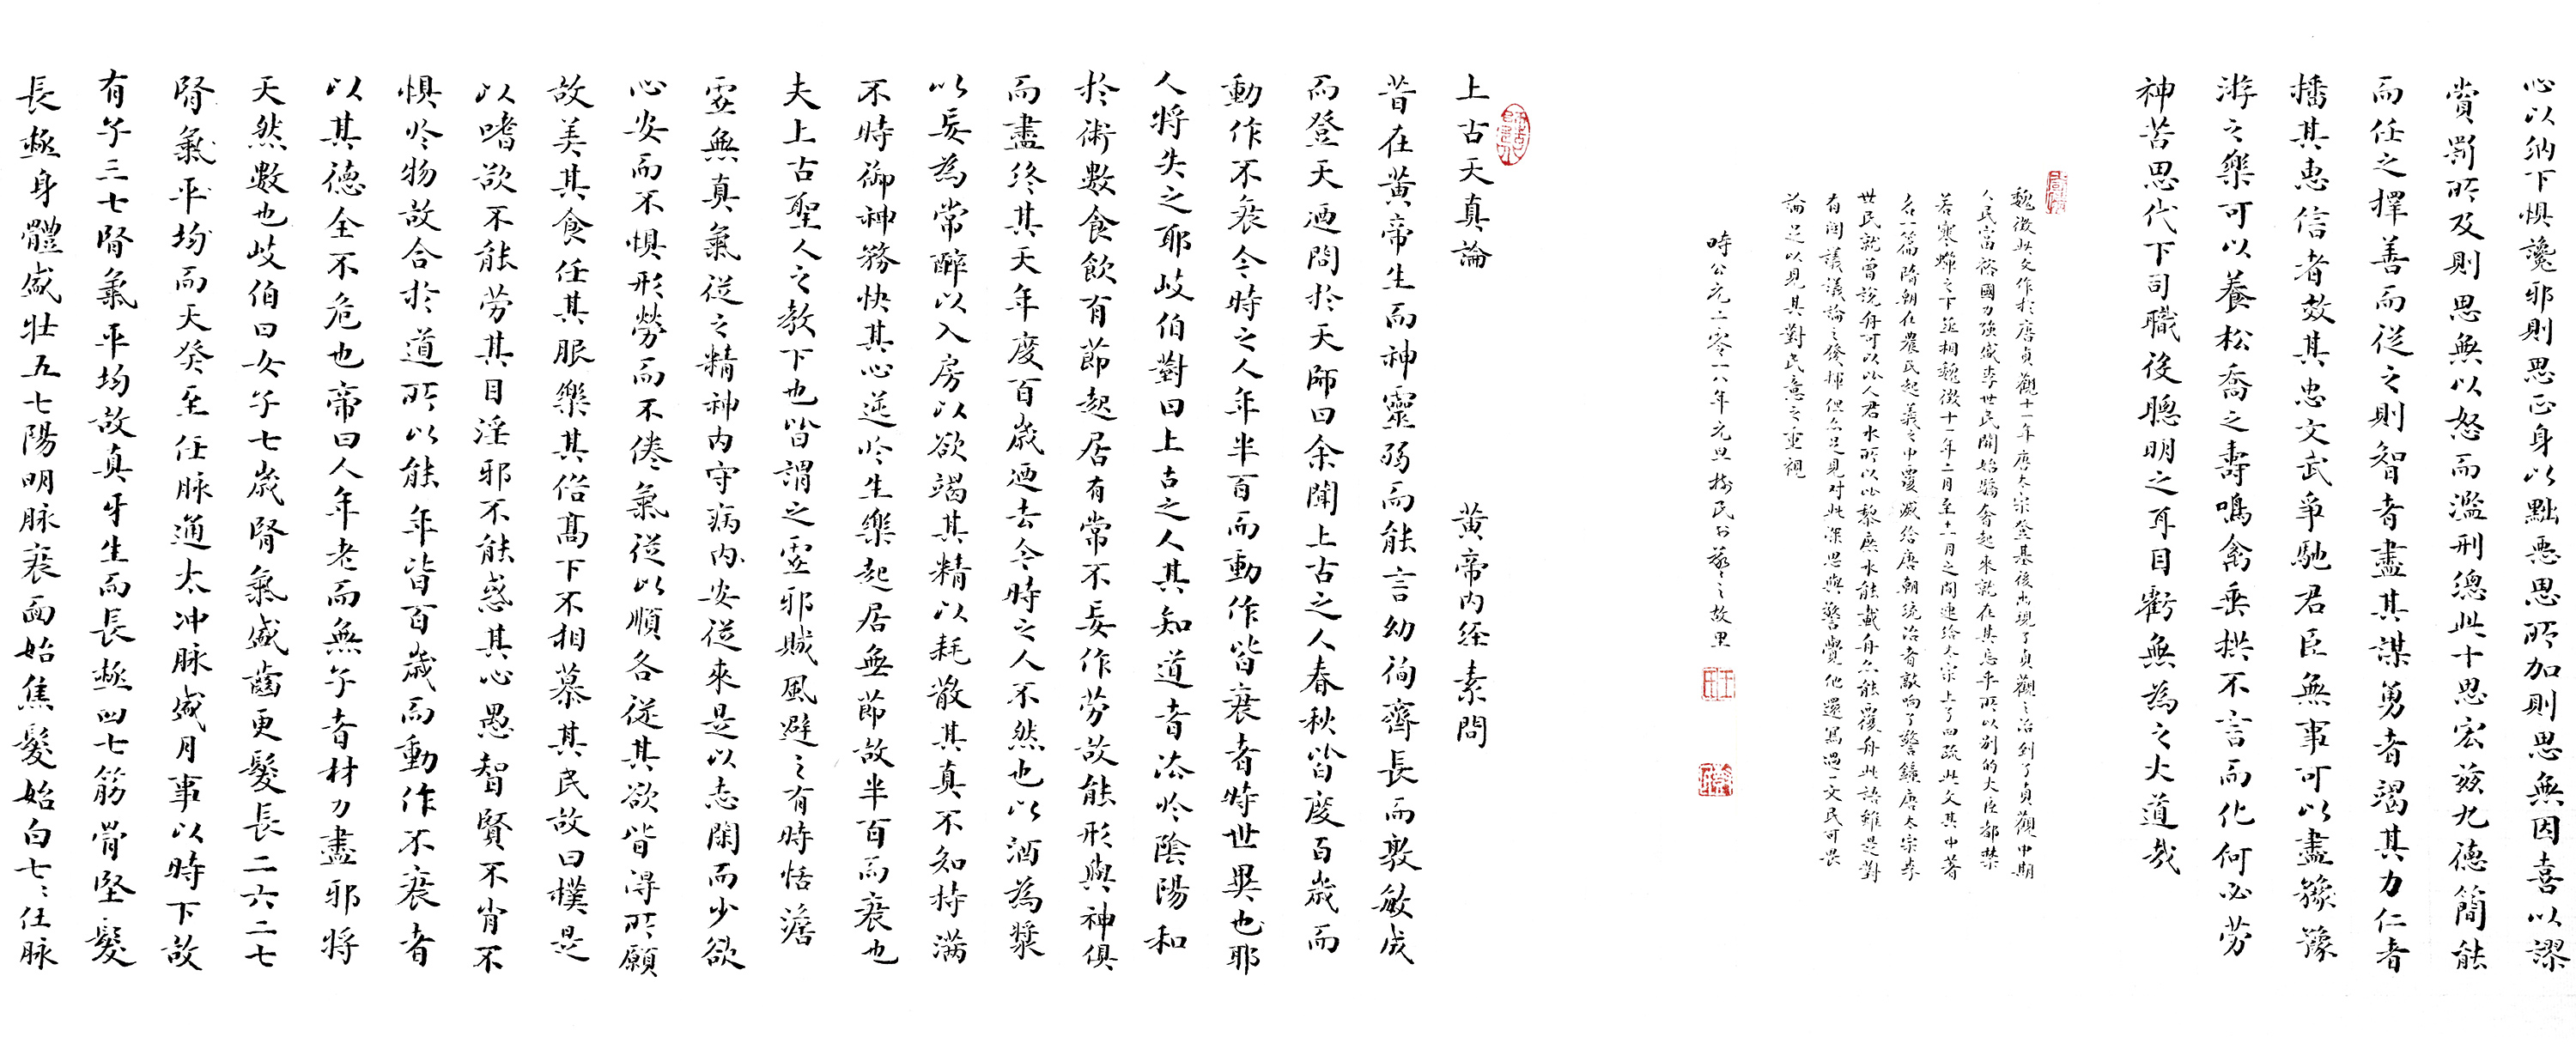 心以納下懼讒邪則思正身以黜惡思所加則思無因喜以謬
賞罰所及則思無以怒而濫刑總此十思宏茲九德簡能
而任之擇善而從之則智者盡其謀勇者竭其力仁者
播其惠信者效其忠文武爭馳君臣無事可以盡豫
游之樂可以養松喬之壽鳴禽垂拱不言而化何必勞
神苦思代下司職役聰明之耳目虧無為之大道哉
魏徵此文作於唐貞觀十一年唐太宗登基後出現了貞觀之治到了貞觀中期
人民富裕國力強盛李世民開始驕奢起來就在其忘乎所以別的大臣都禁
若寒蟬之下丞相魏徵十一年二月至十一月之間連給太宗上了四疏此文其中著
名一篇隋朝在農民起義之中覆滅給唐朝統治者敲响了警鐘唐太宗李
世民就曾說舟可以比人君水所以比黎庶水能載舟亦能覆舟此語雖是對
有關議議論之發揮但亦足見对此深思與警覺他還寫過一文民可畏
論足以見其對民意之重視
時公元二零一八年元旦 樹民書 之故里
上古天真論 黃帝內经素問
昔在黃帝生而神靈弱而能言幼徇齊長而敦敏成
而登天迺問於天師曰余聞上古之人春秋皆度百歲而
動作不衰今時之人年半百而動作皆衰者時世異也耶
人將失之耶岐伯對曰上古之人其知道者法於陰陽和
於術數食飲有節起居有常不妄作勞故能形與神俱
而盡終其天年度百歲迺去今時之人不然也以酒為漿
以妄為常醉以入房以欲竭其精以耗散其真不知持滿
不時御神務快其心逆於生樂起居無節故半百而衰也
夫上古聖人之教下也皆謂之虛邪賊風避之有時恬澹
虛無真氣從之精神內守病內安從來是以志閑而少欲
心安而不懼形勞而不倦氣從以順各從其欲皆得所願
故美其食任其服樂其俗高下不相慕其民故曰樸是
以嗜欲不能劳其目淫邪不能惑其心愚智賢不肖不
懼於物故合於道所以能年皆百歲而動作不衰者
以其德全不危也帝曰人年老而無子者材力盡邪將
天然數也岐伯曰女子七歲腎氣盛齒更髮長二六二七
腎氣平均而天癸至任脉通太冲脉盛月事以時下故
有子三七腎氣平均故真牙生而長極四七筋骨堅髮
長極身體盛壯五七陽明脉衰面始焦髮始白七七任脉